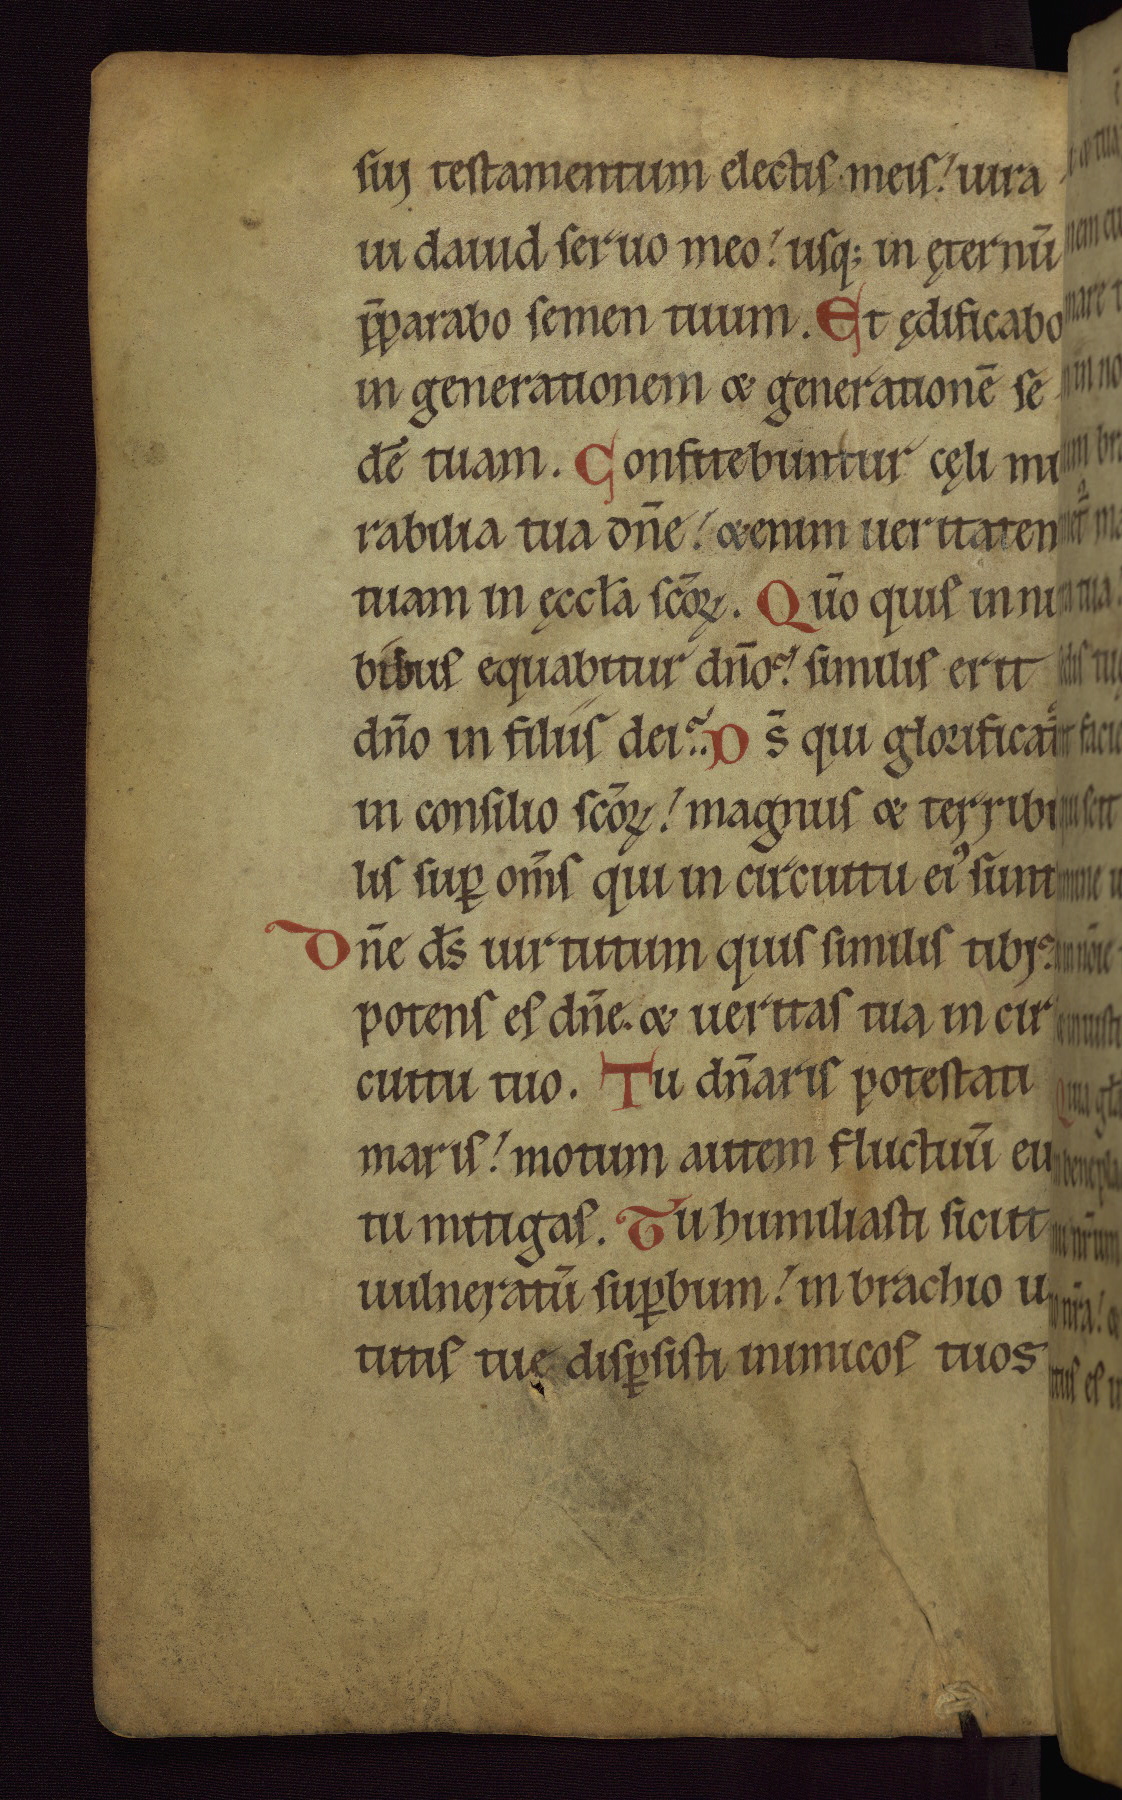 sui testamentum electis meis! iura
ui dauid seruo meo! usq; in ęternū
p̄parabo semen tuum. Et ędificabo
in generationem & generationē se
dē tuam. Confitebuntur cęli mi
rabilia tua dn̄e! & enim ueritatem
tuam in ęccl̄a scōꝝ. Qūo quis in nu
bibus equabitur dn̄o? similis erit
dn̄o in filiis dei? Ds̄ qui glorificat̄
in consilio scōꝝ! magnus & terribi
lis suꝑ om̄s qui in circuitu eiꝰ sunt
Dn̄e ds̄ uirtutum quis similis tibi?
potens es dn̄e. & ueritas tua in cir
cuitu tuo. Tu dn̄aris potestati
maris! motum autem fluctuū eius
tu mitigas. Tu humiliasti sicut
uulneratū suꝑbum! in brachio uir
tutis tuę disꝑsisti inimicos tuos